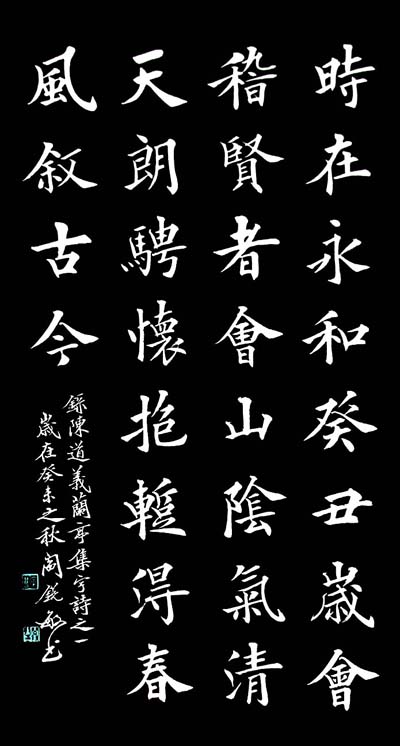 時在永和癸丑歲會
稽賢者會山陰氣清
天朗騁懷抱蹔得春
風叙古今
錄陳道義蘭亭集字詩之一
歲在癸未之秋閻銳敏书